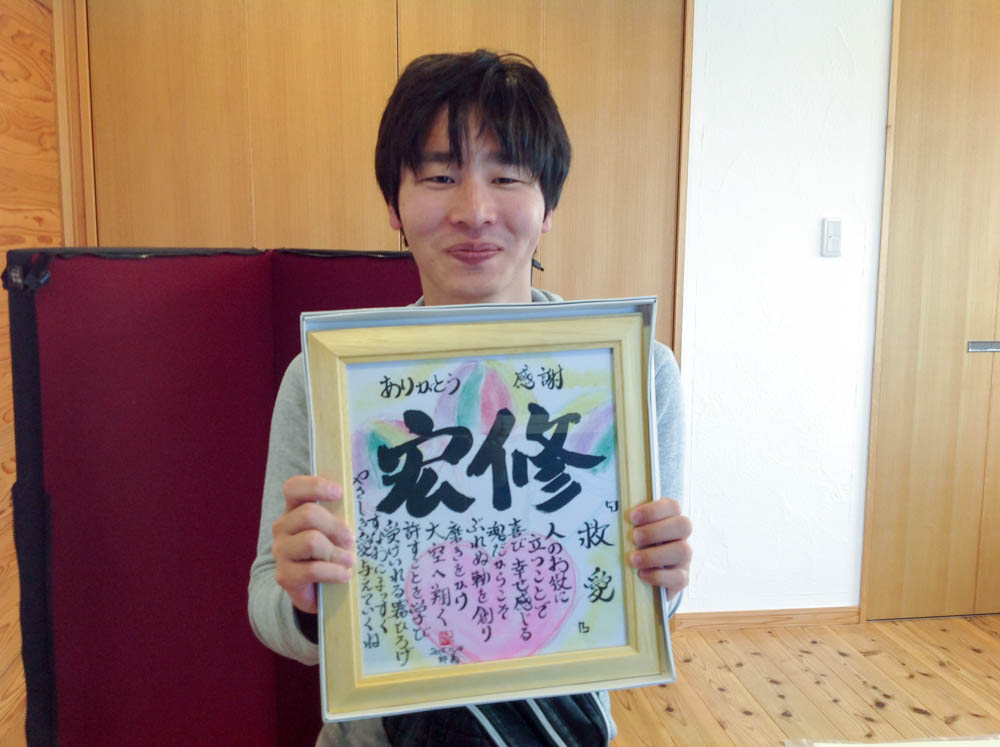 ありがとう 感謝
修宏
「救愛」
人のお役に
立つことで
喜び幸せ感じる
魂だからこそ
ぶれぬ軸を創り
磨きをかけ
大空へ翔く
許すことを学び
受けいれる器ひろげ
すなおにまっすぐ
やさしき愛与えていくね